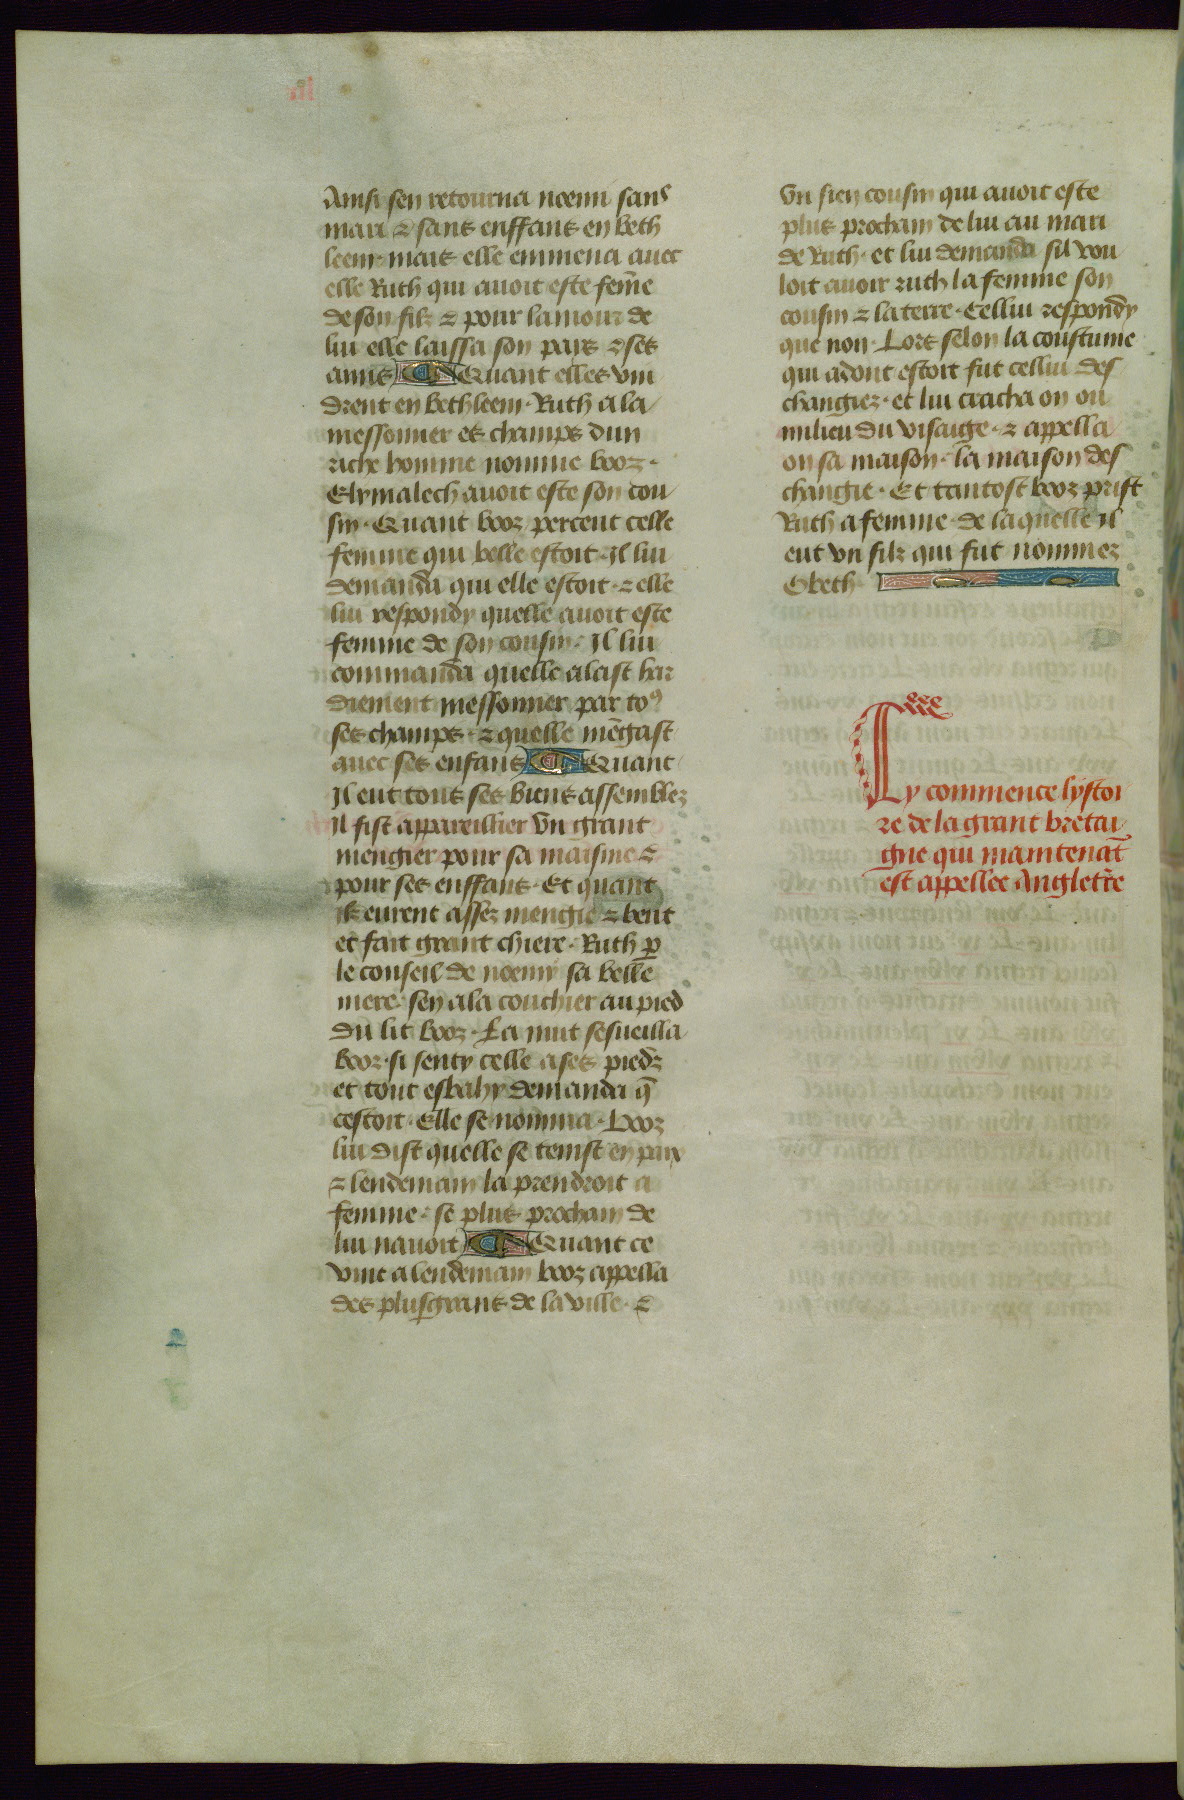 Ainsi sen retourna noemi sans
mari ⁊ sans enffans en beth
leem. mais elle emmena avec
elle Ruth qui avoit este fem̄e
de son filz ⁊ pour lamour de
lui elle laissa son pays ⁊ ses
amis Quant elles vin
drent en bethleem. Ruth ala
messonner es champs dun
riche homme nomme booz.
Elymalech avoit este son cou
sin. Quant booz percent celle
femme qui belle estoit. Il lui
demanda qui elle estoit. ⁊ elle
lui respondy quelle avoit este
femme de son cousin. Il lui
commanda quelle alast har
diement messonner par toꝰ
ses champs. ⁊ quelle mēgast
avec ses enfans Quant
Il eut tous ses biens assemblez
Il fist appareillier Vn grant
mengier pour sa maisnie ⁊
pour ses enffans. Et quant
ilz eurent assez mengie ⁊ beut
et fait grant chiere. Ruth ꝑ
le conseil de noemy sa belle
mere. sen ala couchier au pied
du lit booz. La nuit sesveilla
booz. si senty celle a ses piedz
et tout esbahy demanda q̄
cestoit. Elle se nomma. Booz
lui dist quelle se tenist en paix
⁊ lendemain la prendroit a
femme. se plus prochain de
lui navoit Quant ce
vint a lendemain booz appella
des plus grans de la ville. ⁊
Vn sien cousin qui avoit este
plus prochain de lui au mari
de Ruth. et lui demanda sil vou
loit avoir ruth la femme son
cousin ⁊ la terre. Cellui respondy
que non. Lors selon la coustume
qui adont estoit fut cellui des
changiez. et lui cracha on ou
milieu du visaige. ⁊ appella
on sa maison. la maison des
changie. Et tantost booz prist
Ruth a femme. de laquelle il
eut vn filz qui fut nommez
Obeth.
Icy commence lystoi
re de la grant bretai
gne qui maintenāt
est appellee Angletr̄e